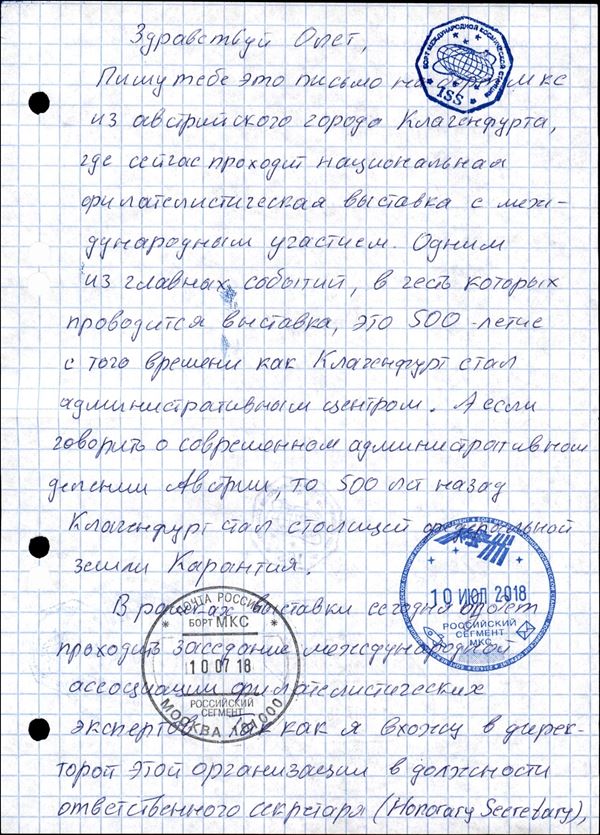 Здравствуй Олег,
БОРТ МЕЖДУНАРОДНОЙ КОСМИЧЕСКОЙ СТАНЦИИ
ISS
Пишу тебе это письмо на МКС
из австрийского города Клагенфурта,
где сейчас проходит национальная
филателистическая выставка с меж-
дународным участием. Одним
из главных событий, в честь которых
проводится выставка, это 500-летие
с того времени как Клагенфурт стал
административным центром. А если
говорить о современном административном
делении Австрии, то 500 лет назад
Клагенфурт стал столицей федеральной
земли Карантия.
10 ИЮЛ 2018
РОССИЙСКИЙ
СЕГМЕНТ
МКС
В рамках выставки сегодня будет
проходить заседание международной
ассоциации филателистических
экспертов. Так как я вхожу в дирек-
торат этой организации в должности
ответственного секретаря (Honorary Secretary),
ПОЧТА РОССИИ
БОРТ МКС
10 07 18
РОССИЙСКИЙ
СЕГМЕНТ
МОСКВА 101000